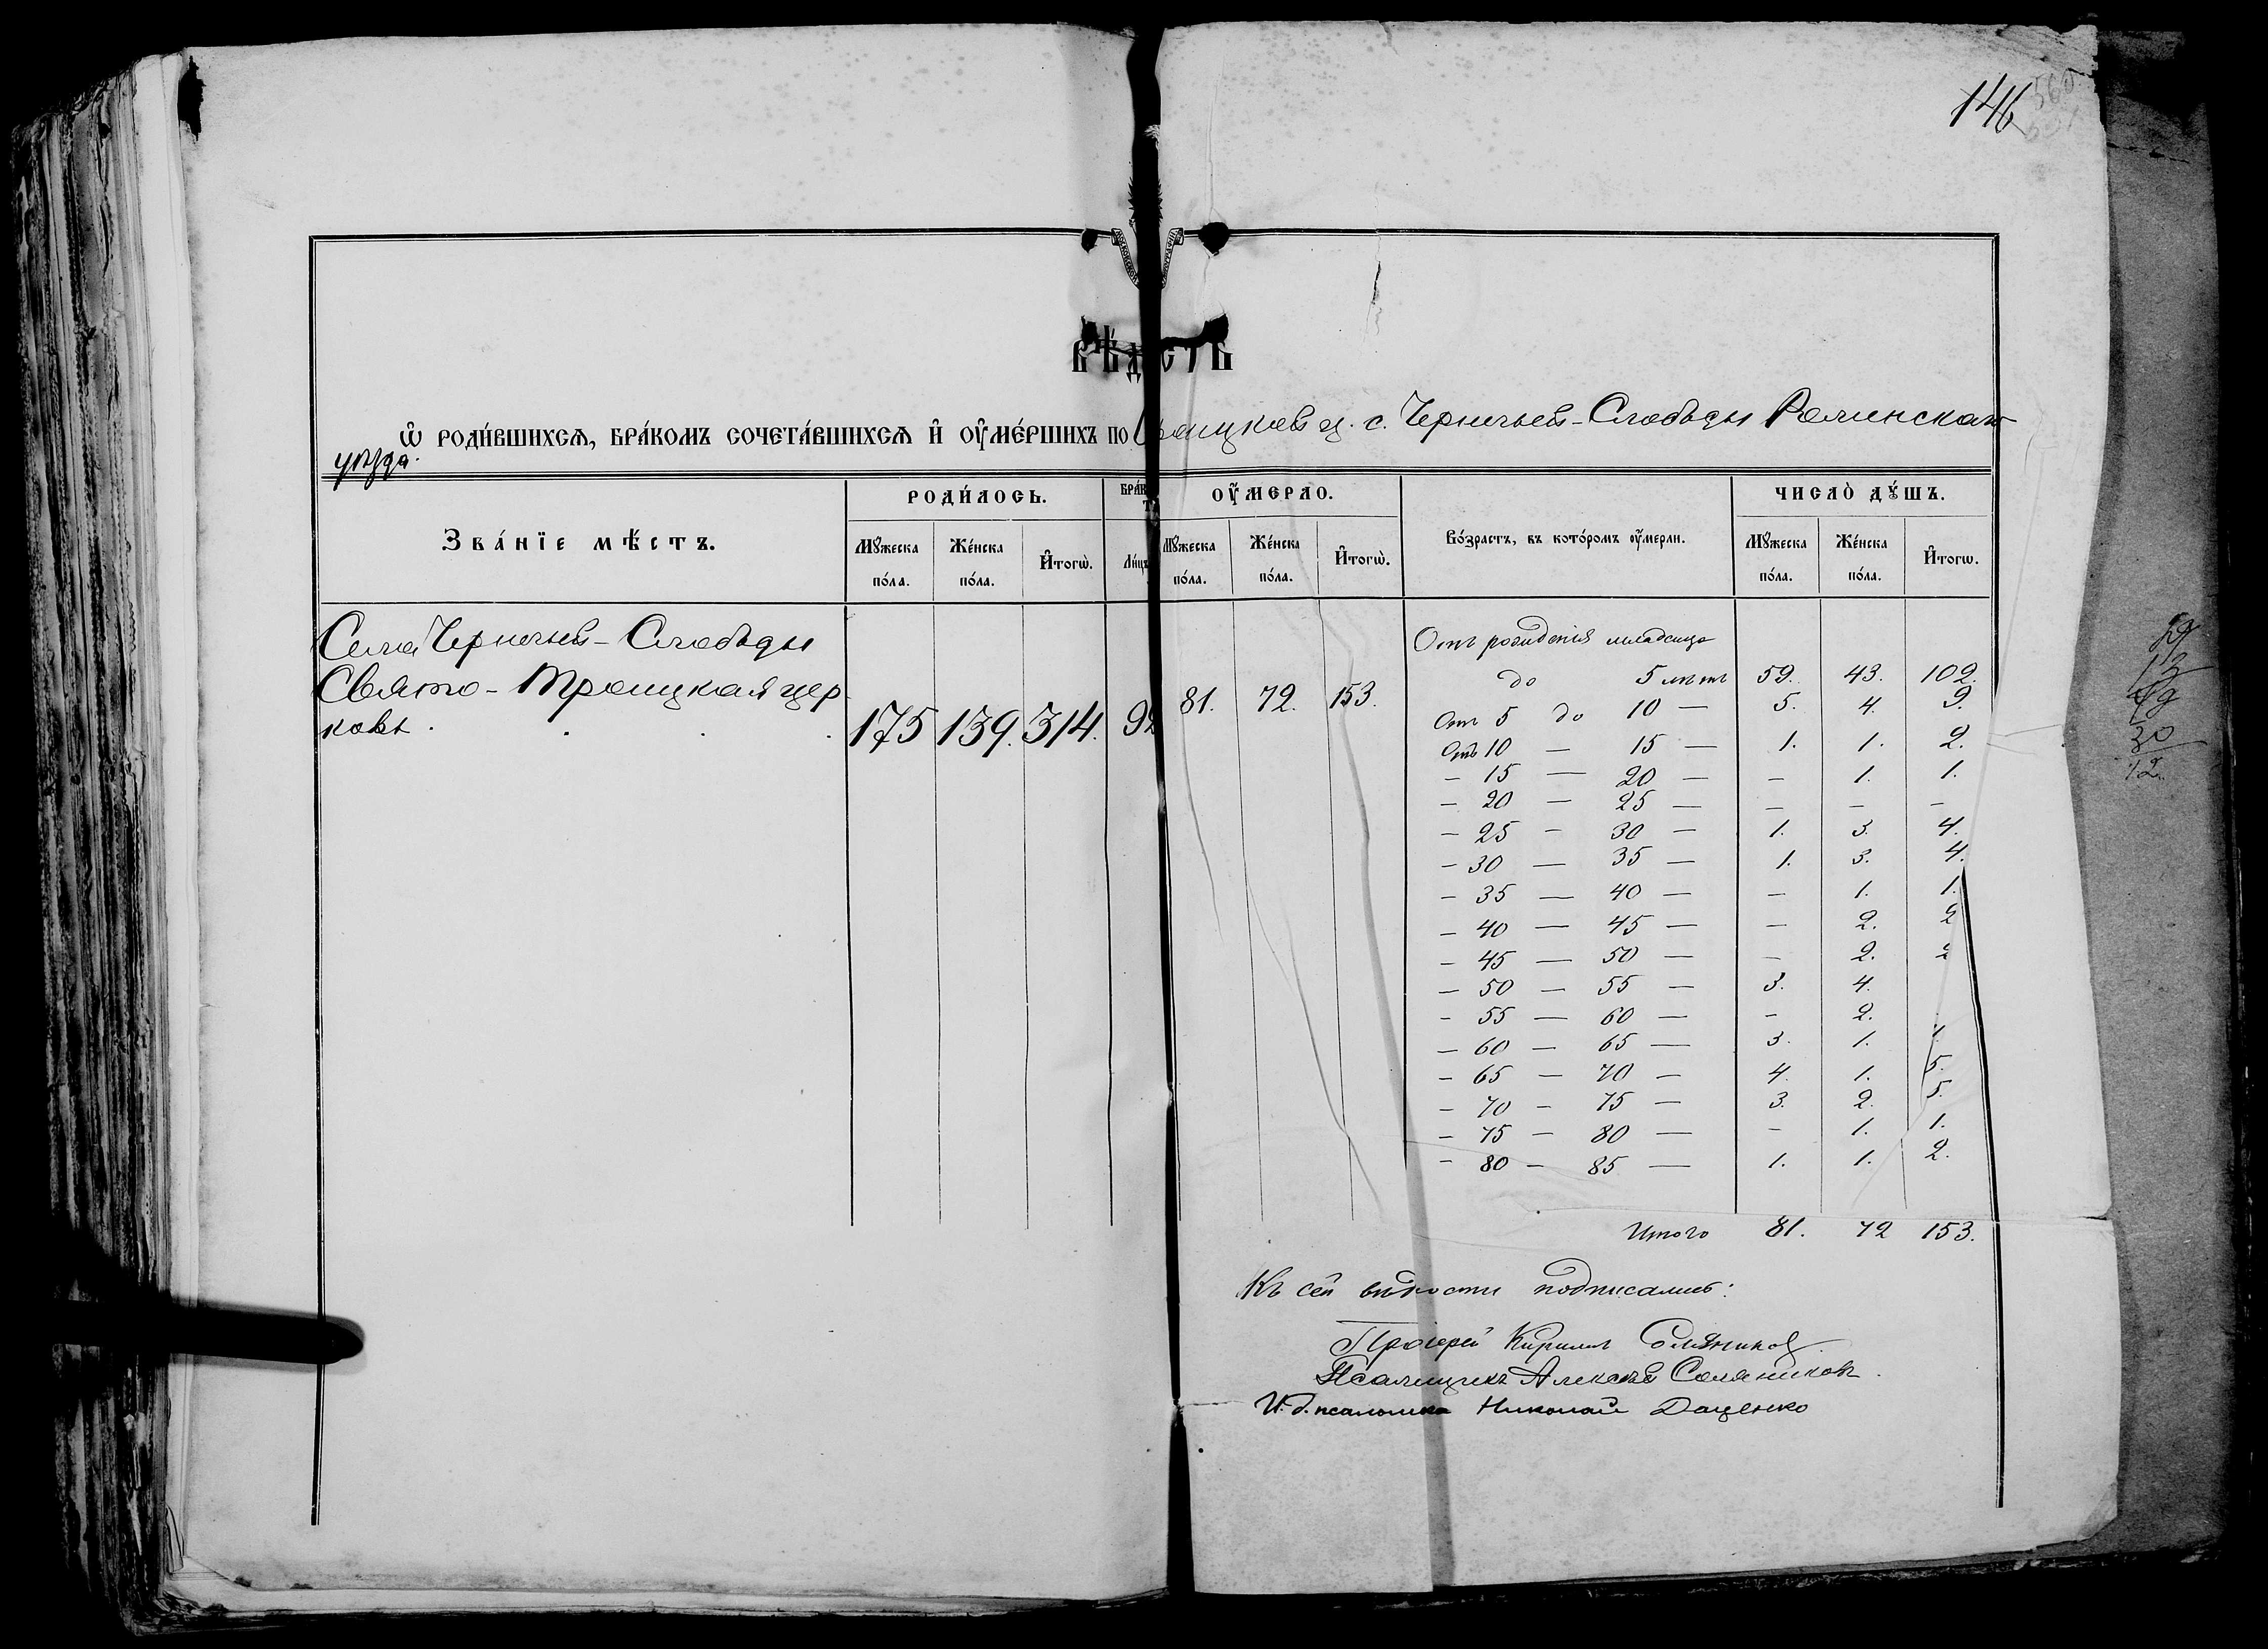 146
ВѢ́ДОСТЬ
Ѡ҆ РОДИ́ВШИХСѦ, БРА́КОМЪ СОЧЕТА́ВШИХСѦ И҆ ОУ҆МЕ́РШИХЪ ПО Троицкой ц. с. Черничьей-Слободы Роменскаго
уѣзда.
Зва́нїе мѣ́стъ.
РОДИ́ЛОСЬ.
Мꙋ́жеска по́ла.
Же́нска по́ла.
И҆тогѡ̀.
БРА́К
Ли́цъ
ОУ҆́МЕРЛО.
Мꙋ́жеска по́ла.
Же́нска по́ла.
И҆тогѡ̀.
Во́зрастъ, въ кото́ромъ оу҆́мерли.
ЧИСЛО̀ ДꙊ́ШЪ.
Мꙋ́жеска по́ла.
Же́нска по́ла.
И҆тогѡ̀.
Села Черничьей-Слободы
Свято-Троицкая цер-
ковь . . . . 175 139. 314. 92 81. 72. 153.
Отъ рожденія младенца
до 5 лѣтъ 59. 43. 102.
Отъ 5 до 10 — 5. 4. 9.
Отъ 10 — 15 — 1. 1. 2.
— 15 — 20 — — 1. 1.
— 20 — 25 — — — —
— 25 — 30 — 1. 3. 4.
— 30 — 35 — 1. 3. 4.
— 35 — 40 — — 1. 1.
— 40 — 45 — — 2. 2
— 45 — 50 — — 2. 2
— 50 — 55 — 3. 4.
— 55 — 60 — — 2.
— 60 — 65 — 3. 1.
— 65 — 70 — 4. 1. 5.
— 70 — 75 — 3. 2. 5.
— 75 — 80 — — 1. 1.
— 80 — 85 — 1. 1. 2.
Итого 81. 72 153.
Къ сей вѣдости подписались:
Протіерей Кирилл Соляников
Псаломщикъ Алексѣй Соляниковъ.
И. д. псаломщ Николай Даценко
30
12.